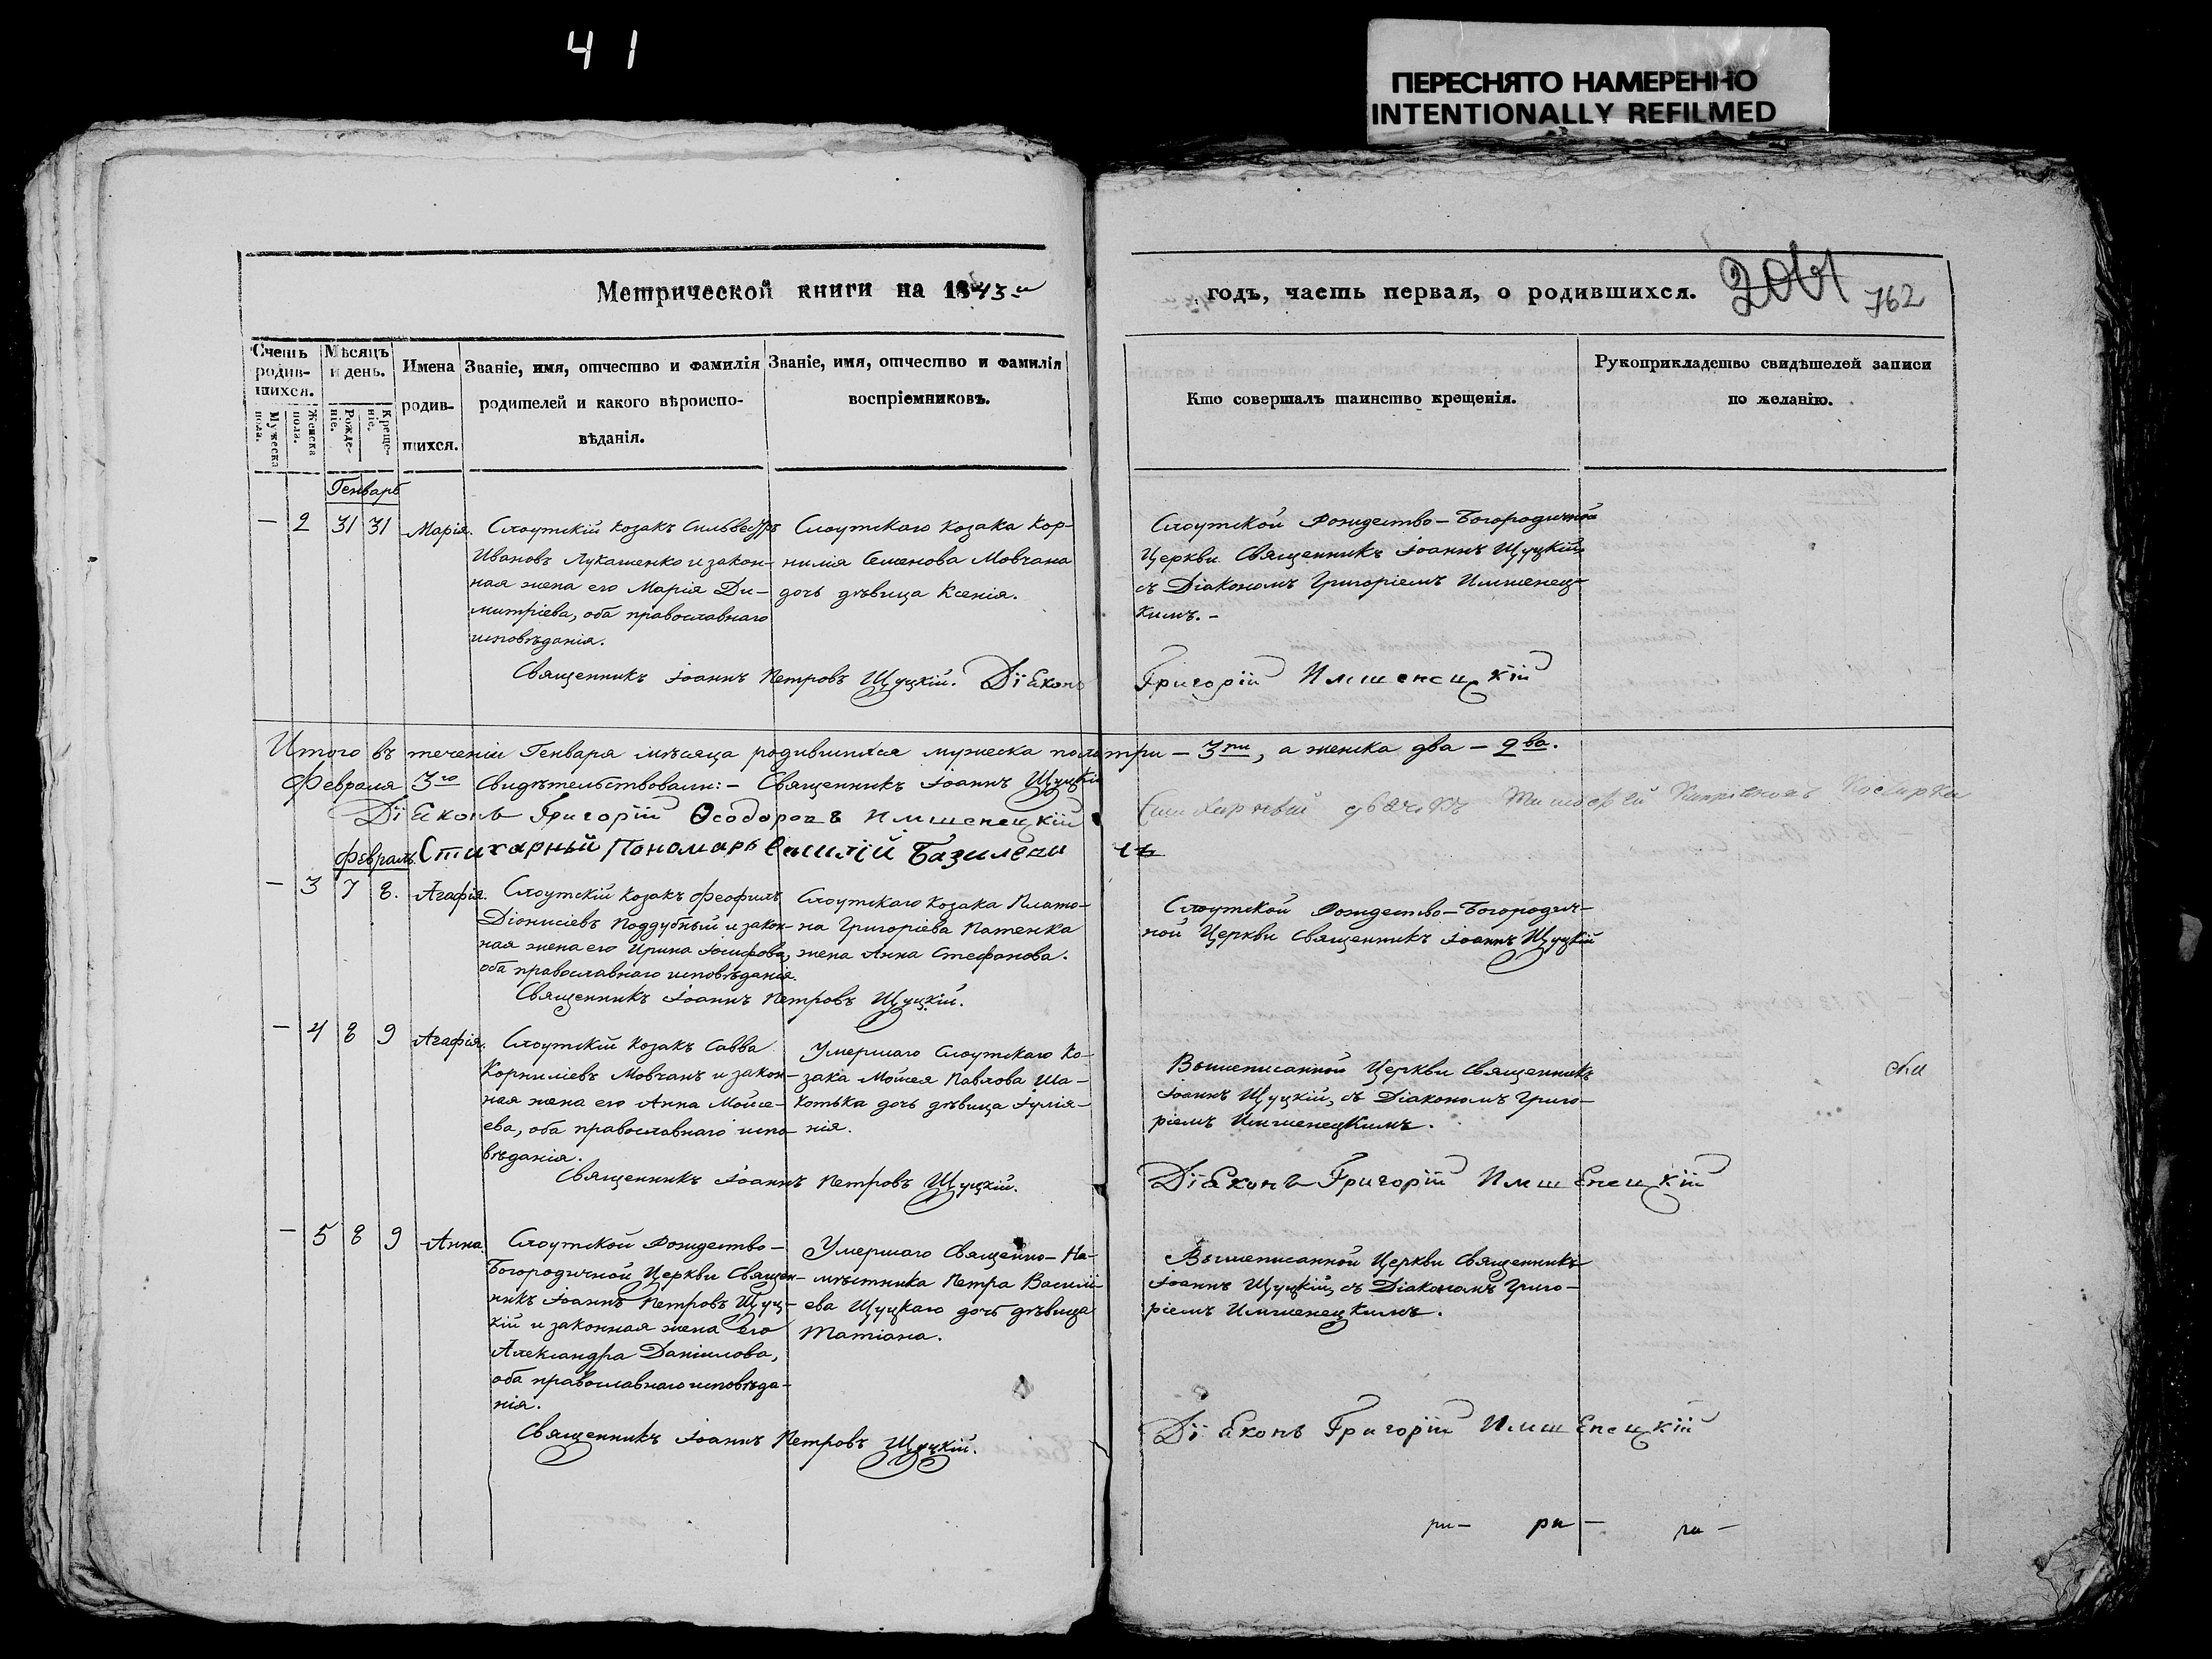 41
ПЕРЕСНЯТО НАМЕРЕННО
INTENTIONALLY REFILMED
Метрической книги на 1843й
годъ, часть первая, о родившихся.
204
762
Счетъ родив-шихся.
Мужеска пола.
Женска пола.
Мѣсяцъ и день.
Рожде-ніе.
Креще-ніе.
Имена родив-шихся.
Званіе, имя, отчество и фамилія родителей и какого вѣроиспо-вѣданія.
Званіе, имя, отчество и фамилія воспріемниковъ.
Кто совершалъ таинство крещенія.
Рукоприкладство свидѣтелей записи по желанію.
Генварь
— 2 31 31 Марія.
Слоутскій козакъ Сильвестръ
Ивановъ Лукашенко и закон-
ная жена его Марія Ди-
митріева, оба православнаго
исповѣданія.
Слоутскаго козака Кор-
нилія Семенова Мовчана
дочь дѣвица Ксенія.
Слоутской Рождество-Богородичной
Церкви Священникъ Іоаннъ Щуцкій
съ Діакономъ Григоріемъ Имшенец-
кимъ.-
Священникъ Іоаннъ Петровъ Щуцкій. Діаконъ Григорій Имшенецкій
Итого въ теченіи Генваря мѣсяца родившихся мужеска пола три — 3ри, а женска два — 2ва.
Февраля 3го Свидѣтельствовали:- Священникъ Іоаннъ Щуцкій
Діаконъ Григорій Ѳеодоровъ Имшенецкій
Стихарный дьячокъ
Стихарный Пономарь Василій Базилеви
Февраль.
— 3 7 8. Агафія.
Слоутскій козакъ Феофилъ
Діонисіевъ Поддубный и закон-
ная жена его Ирина Іосифова,
оба православнаго исповѣданія.
Слоутскаго козака Плато-
на Григоріева Патенка
жена Анна Стефанова.
Слоутской Рождество-Богородич-
ной Церкви Священникъ Іоаннъ Щуцкій
Священникъ Іоаннъ Петровъ Щуцкій.
— 4 8 9 Агафія.
Слоутскій козакъ Савва
Корниліевъ Мовчанъ и закон-
ная жена его Анна Мойсе-
ева, оба православнаго испо-
вѣданія.
Умершаго Слоутскаго Ко-
зака Мойсея Павлова Ша-
котька дочь дѣвица Іулія-
нія.
Вышеписанной Церкви Священникъ
Іоаннъ Щуцкій, съ Діакономъ Григо-
ріемъ Имшенецкимъ.
Священникъ Іоаннъ Петровъ Щуцкій.
Діаконъ Григорій Имшенецкій
— 5 8 9 Анна.
Слоутской Рождество-
Богородичной Церкви Священ-
никъ Іоаннъ Петровъ Щуц-
кій и законная жена его
Александра Даніилова,
оба православнаго исповѣда-
нія.
Умершаго Священно-На-
мѣстника Петра Василі-
ева Щуцкаго дочь дѣвица
Татіана.
Вышеписанной Церкви Священникъ
Іоаннъ Щуцкій, съ Діакономъ Григо-
ріемъ Имшенецкимъ.
Священникъ Іоаннъ Петровъ Щуцкій.
Діаконъ Григорій Имшенецкій
ри— ри— ри—